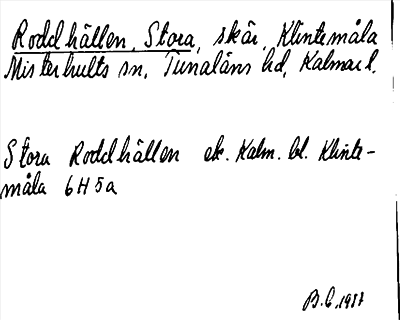 Roddhällen, Stora, skär, Klintemåla
Misterhults sn, Tunaläns hd, Kalmar l.
Stora Roddhällen ek. Kalm. bl. Klinte-
måla 6H5a